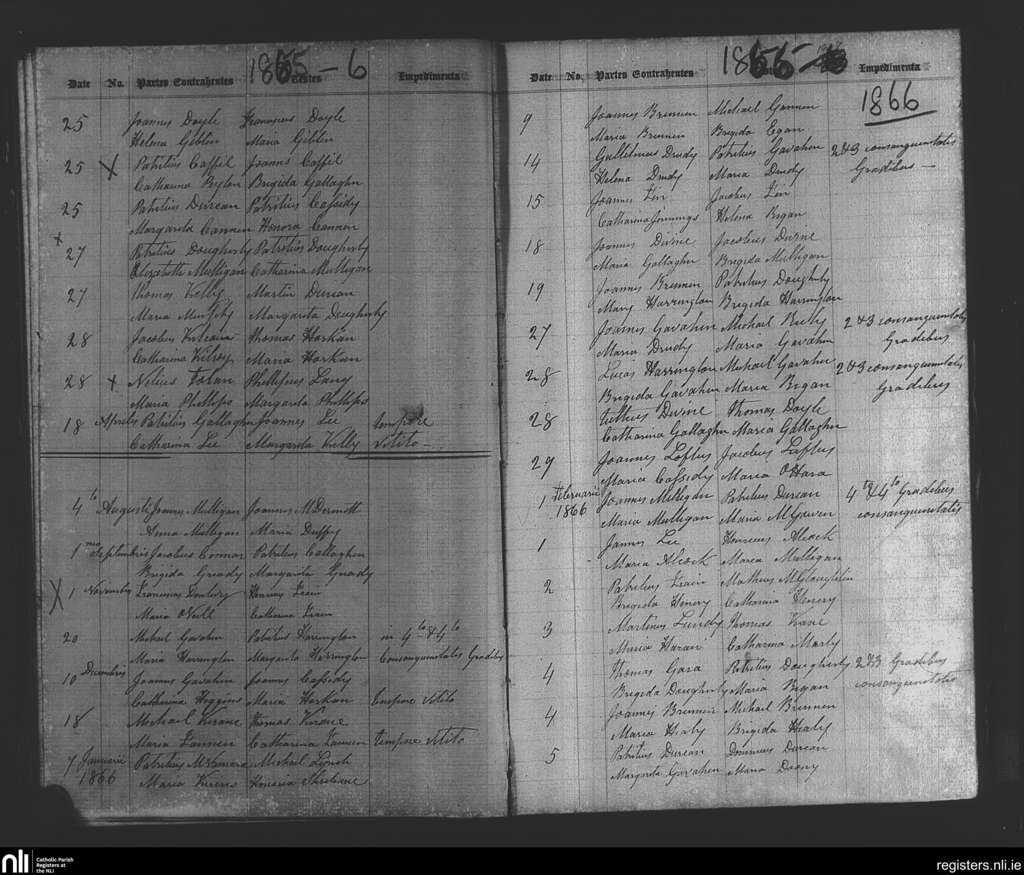 1865 - 6
Date No. Partes Contrahentes Testes Impedimenta
25 Joannes Doyle Franciscus Doyle
Helena Giblin Maria Giblin
25 X Patritius Caffil Joannes Caffil
Catharina Brylan Brigida Gallagher
25 Patritius Durcan Patritius Cassidy
Margarita Cannen Honora Cannon
x 27 Patritius Dougherty Patritius Dougherty
Elizabeth Mulligan Catharina Mulligan
27 Thomas Kelly Martin Durcan
Maria Murphy Margarita Dougherty
28 Jacobus Thomas Horkan
Catharina Kilroy Maria Horkan
28 x Nelius Tolan Lang
Maria Phillips Margarita Phillips
18 Aprilis Patritius Gallagher Joannes Lee tempore
Catharina Lee Margarita Kelly Vetito -
4to Augusti Joannes Mulligan Joannes McDermott
Anna Mulligan Maria Duffy
1mo Septembris Jacobus Connor Patritius Callaghan
Brigida Grady Margarita Grady
X 1 Novembris Franciscus
Maria O'Neill Catharina
20 Michael Gavahen Patritius Harrington in 4to & 4to
Maria Harrington Margarita Harrington Consanguinitatis Gradibus
10 Decembris Joannes Gavahen Joannes Cassidy
Catharina Hoggins Maria Horkan tempore Vetito
18 Michael Kirane Thomas Kirane
Maria Lannen Catharina Lannen tempore Vetito
7 Januarii Patritius McNamara Michael Lynch
1866 Maria Honoria
1866
Date No. Partes Contrahentes Impedimenta
1866
9 Joannes Brennen Michael Gannen
Maria Brennen Brigida Egan
14 Gulielmus Drudy Patritius Gavahen 2 & 3 consanguinitatis
Helena Drudy Maria Drudy Gradibus -
15 Joannes Jacobus
Catharina Jennings Helena Regan
18 Joannes Divine Jacobus Divine
Maria Gallagher Brigida Mulligan
19 Joannes Brennen Patritius Dougherty
Mary Harrington Brigida Harrington
27 Joannes Gavahen Michael 2 & 3 consanguinitatis
Maria Drudy Maria Gavahen Gradibus
28 Lucas Harrington Michael Gavahen 2 & 3 consanguinitatis
Brigida Gavahen Maria Regan Gradibus
28 Divine Thomas Doyle
Catharina Gallagher Maria Gallagher
29 Joannes Loftus Jacobus Loftus
Maria Cassidy Maria O'Hara
1 Februarii Joannes Milligan Patritius Durcan 4to & 4to Gradibus
1866 Maria Mulligan Maria McGowen consanguinitatis
1 James Lee Henricus Alcock
Maria Alcock Maria Mulligan
2 Patritius Matheus McGloughlin
Brigida Henery Catharina Henery
3 Martinus Lundy Thomas Kane
Maria Haran Catharina Marly
4 Thomas Gara Patritius Dougherty 2 & 3 Gradibus
Brigida Dougherty Maria Regan consanguinitatis
4 Joannes Brennen Michael Brennen
Maria Healy Brigida Healy
5 Patritius Durcan Dominicus Durcan
Margarita Gavahen Maria
nli Catholic Parish
Registers at
the NLI
registers.nli.ie